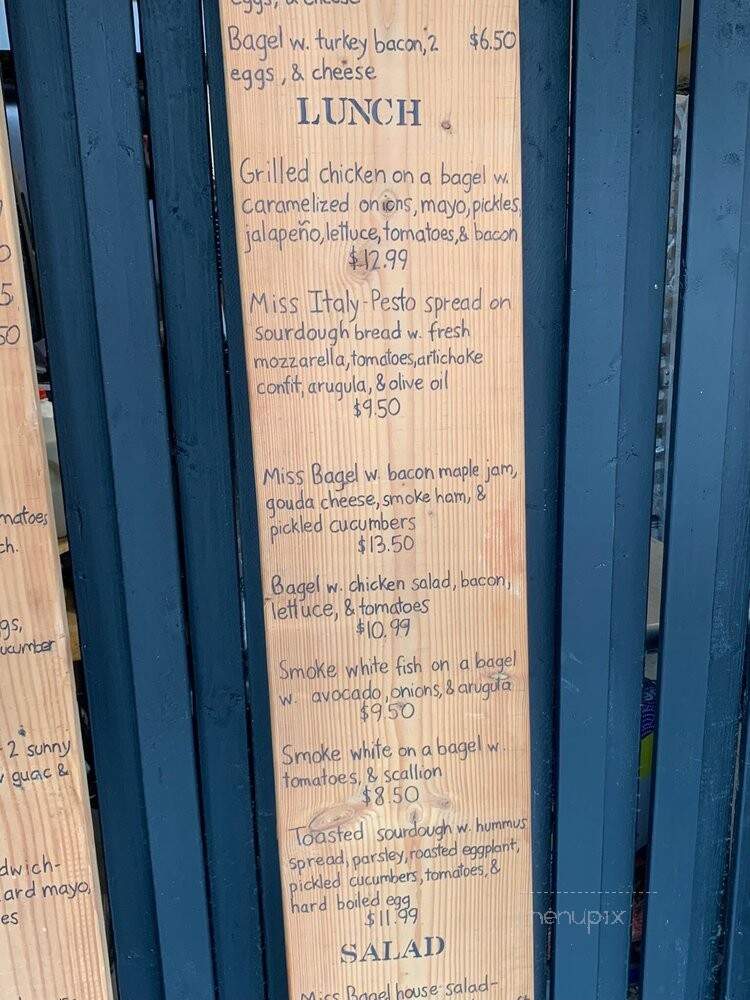 eggs, & cheese
Bagel w. turkey bacon, 2 $6.50
eggs, & cheese
LUNCH
Grilled chicken on a bagel w.
caramelized onions, mayo, pickles,
jalapeño, lettuce, tomatoes, & bacon
$12.99
Miss Italy-Pesto spread on
sourdough bread w. fresh
mozzarella, tomatoes, artichoke
confit, arugula, & olive oil
$9.50
Miss Bagel w. bacon maple jam,
gouda cheese, smoke ham, &
pickled cucumbers
$13.50
Bagel w. chicken salad, bacon,
lettuce, & tomatoes
$10.99
Smoke white fish on a bagel
w. avocado, onions, & arugula
$9.50
Smoke white on a bagel w.
tomatoes, & scallion
$8.50
Toasted sourdough w. hummus
spread, parsley, roasted eggplant,
pickled cucumbers, tomatoes, &
hard boiled egg
$11.99
SALAD
Miss Bagel house salad-
5
50
matoes
ch.
gs,
ucumber
2 sunny
guac &
dwich-
ard mayo,
es
menupix